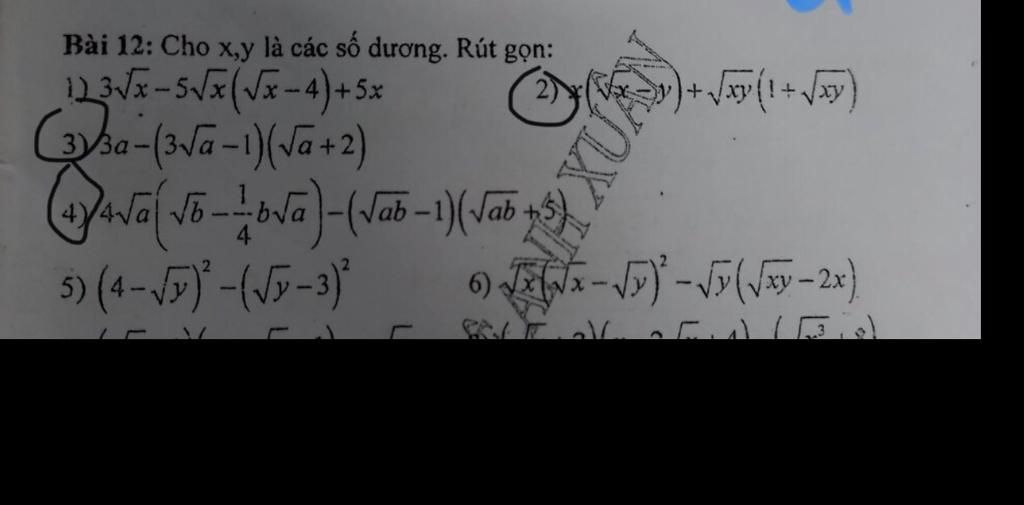 Bài 12: Cho x,y là các số dương. Rút gọn:
1) 3√x − 5√x(√x − 4) + 5x
2) x(√x − y) + √xy(1 + √xy)
3) 3a − (3√a − 1)(√a + 2)
4) 4√a(√b − 1/4 b√a) − (√ab − 1)(√ab + 5)
5) (4 − √y)² − (√y − 3)²
6) √x(√x − √y)² − √y(√xy − 2x)
ANH XUÂN